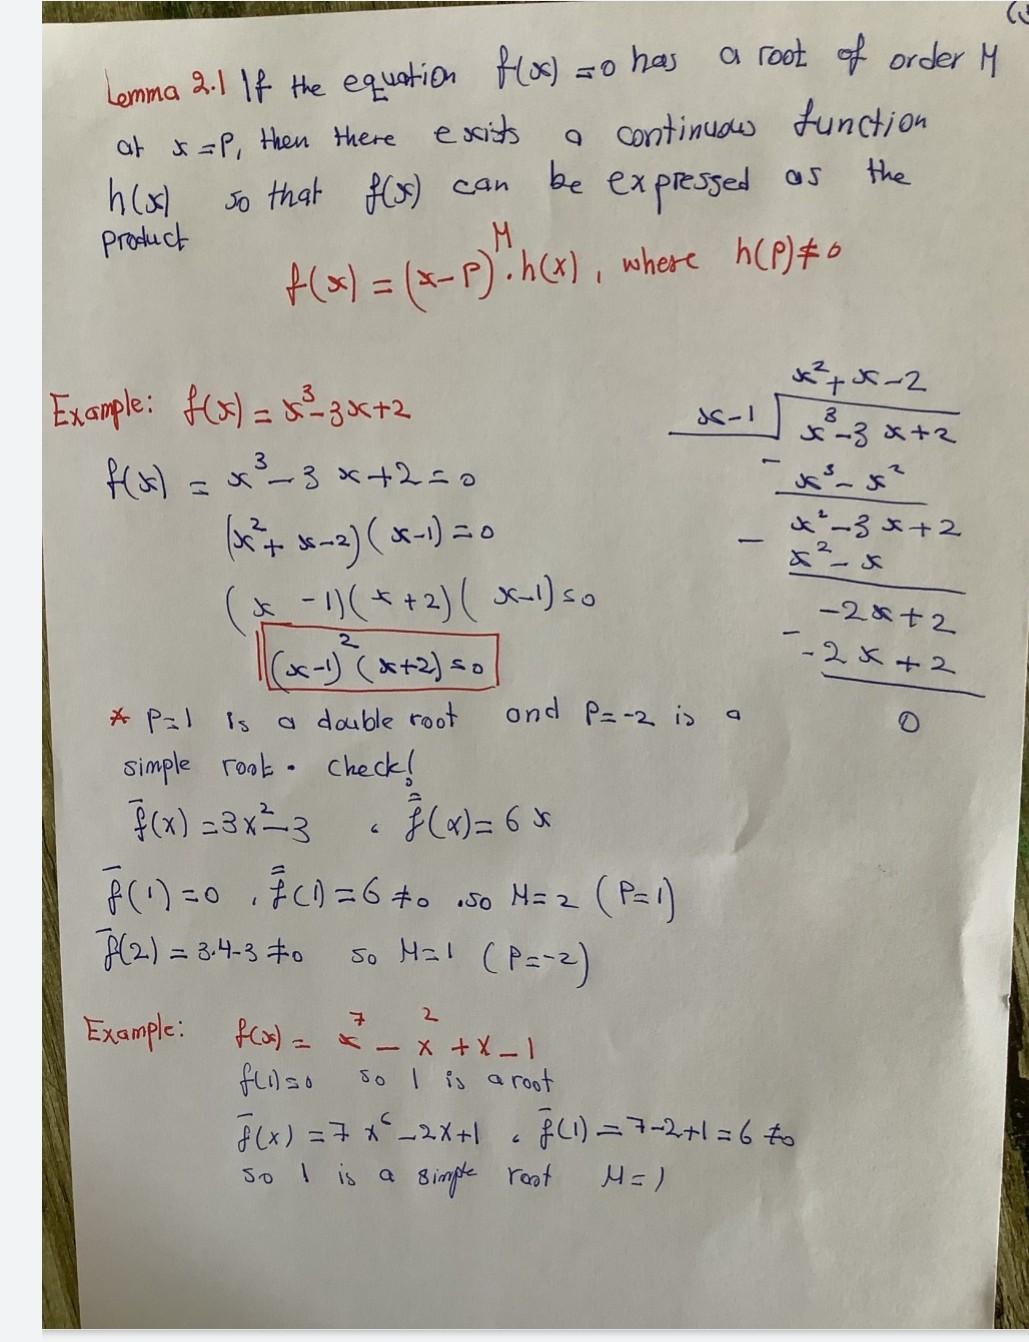 Lemma 2.1 If the equation f(x) = 0 has a root of order M
at x = P, then there exists a continuous function
h(x) so that f(x) can be expressed as the
product
f(x) = (x-P)^M . h(x), where h(P) ≠ 0
Example: f(x) = x³-3x+2
f(x) = x³-3x+2 = 0
(x²+x-2)(x-1) = 0
(x-1)(x+2)(x-1) = 0
(x-1)²(x+2) = 0
x²+x-2
x-1 x³-3x+2
- x³-x²
x²-3x+2
- x²-x
-2x+2
- -2x+2
0
* P=1 is a double root and P=-2 is a
simple root. check!
f̄(x) = 3x²-3 , f̿(x) = 6x
f̄(1) = 0 , f̿(1) = 6 ≠ 0 .so M=2 (P=1)
f̄(2) = 3.4-3 ≠ 0 so M=1 (P=-2)
Example: f(x) = x⁷ - x² + x - 1
f(1)=0 so 1 is a root
f̄(x) = 7x⁶-2x+1 , f̄(1) = 7-2+1 = 6 ≠ 0
so 1 is a simple root M=1